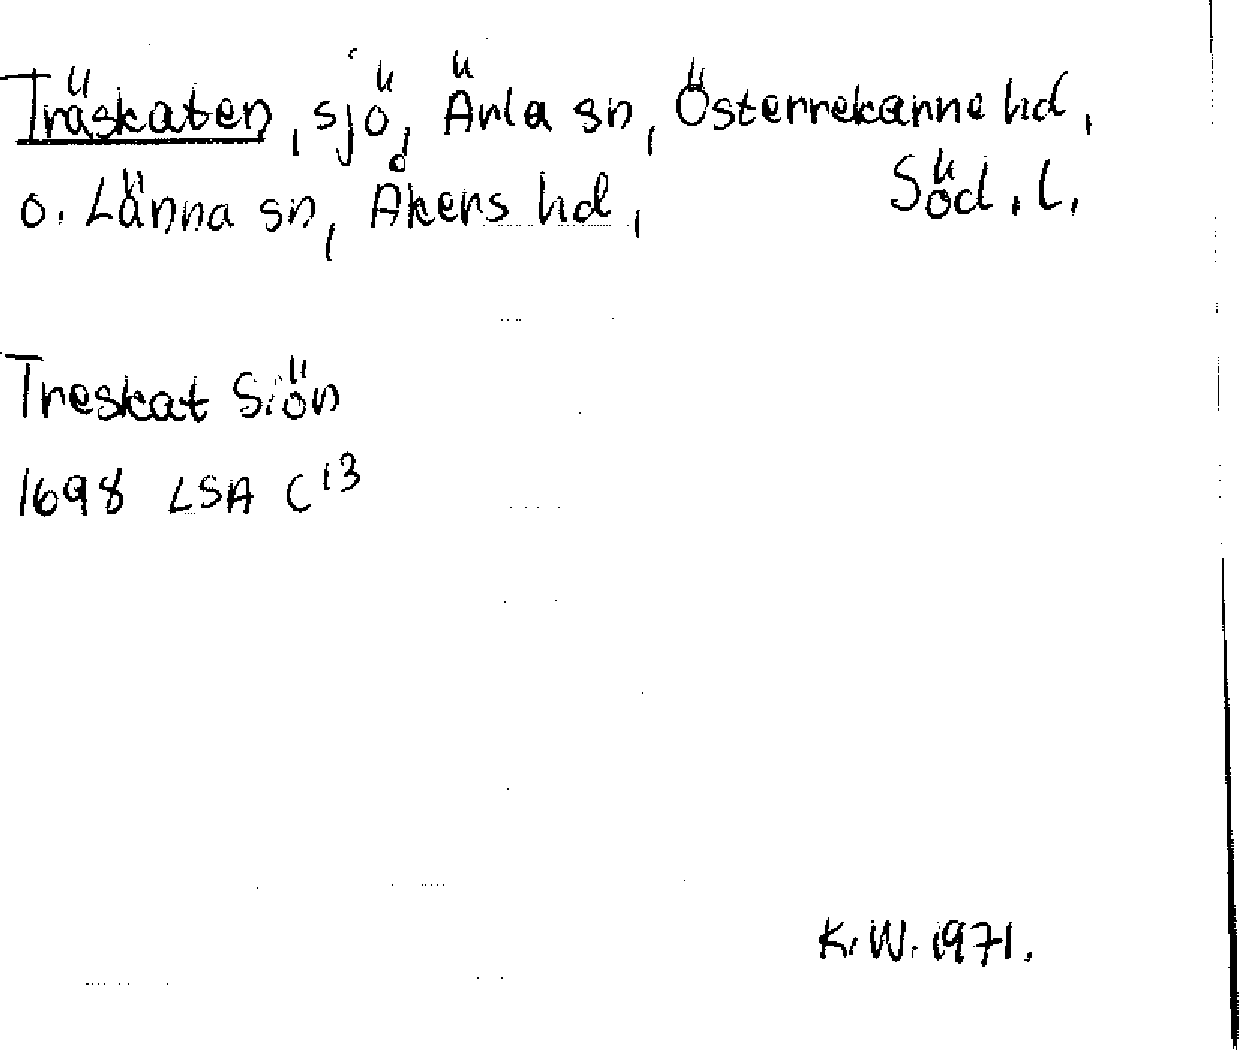 Träskaten, sjö, Ärla sn, Österrekarne hd,
o. Länna sn, Åkers hd, Söd. l.
Treskat Siön
1698 LSA C13
K.W. 1971.